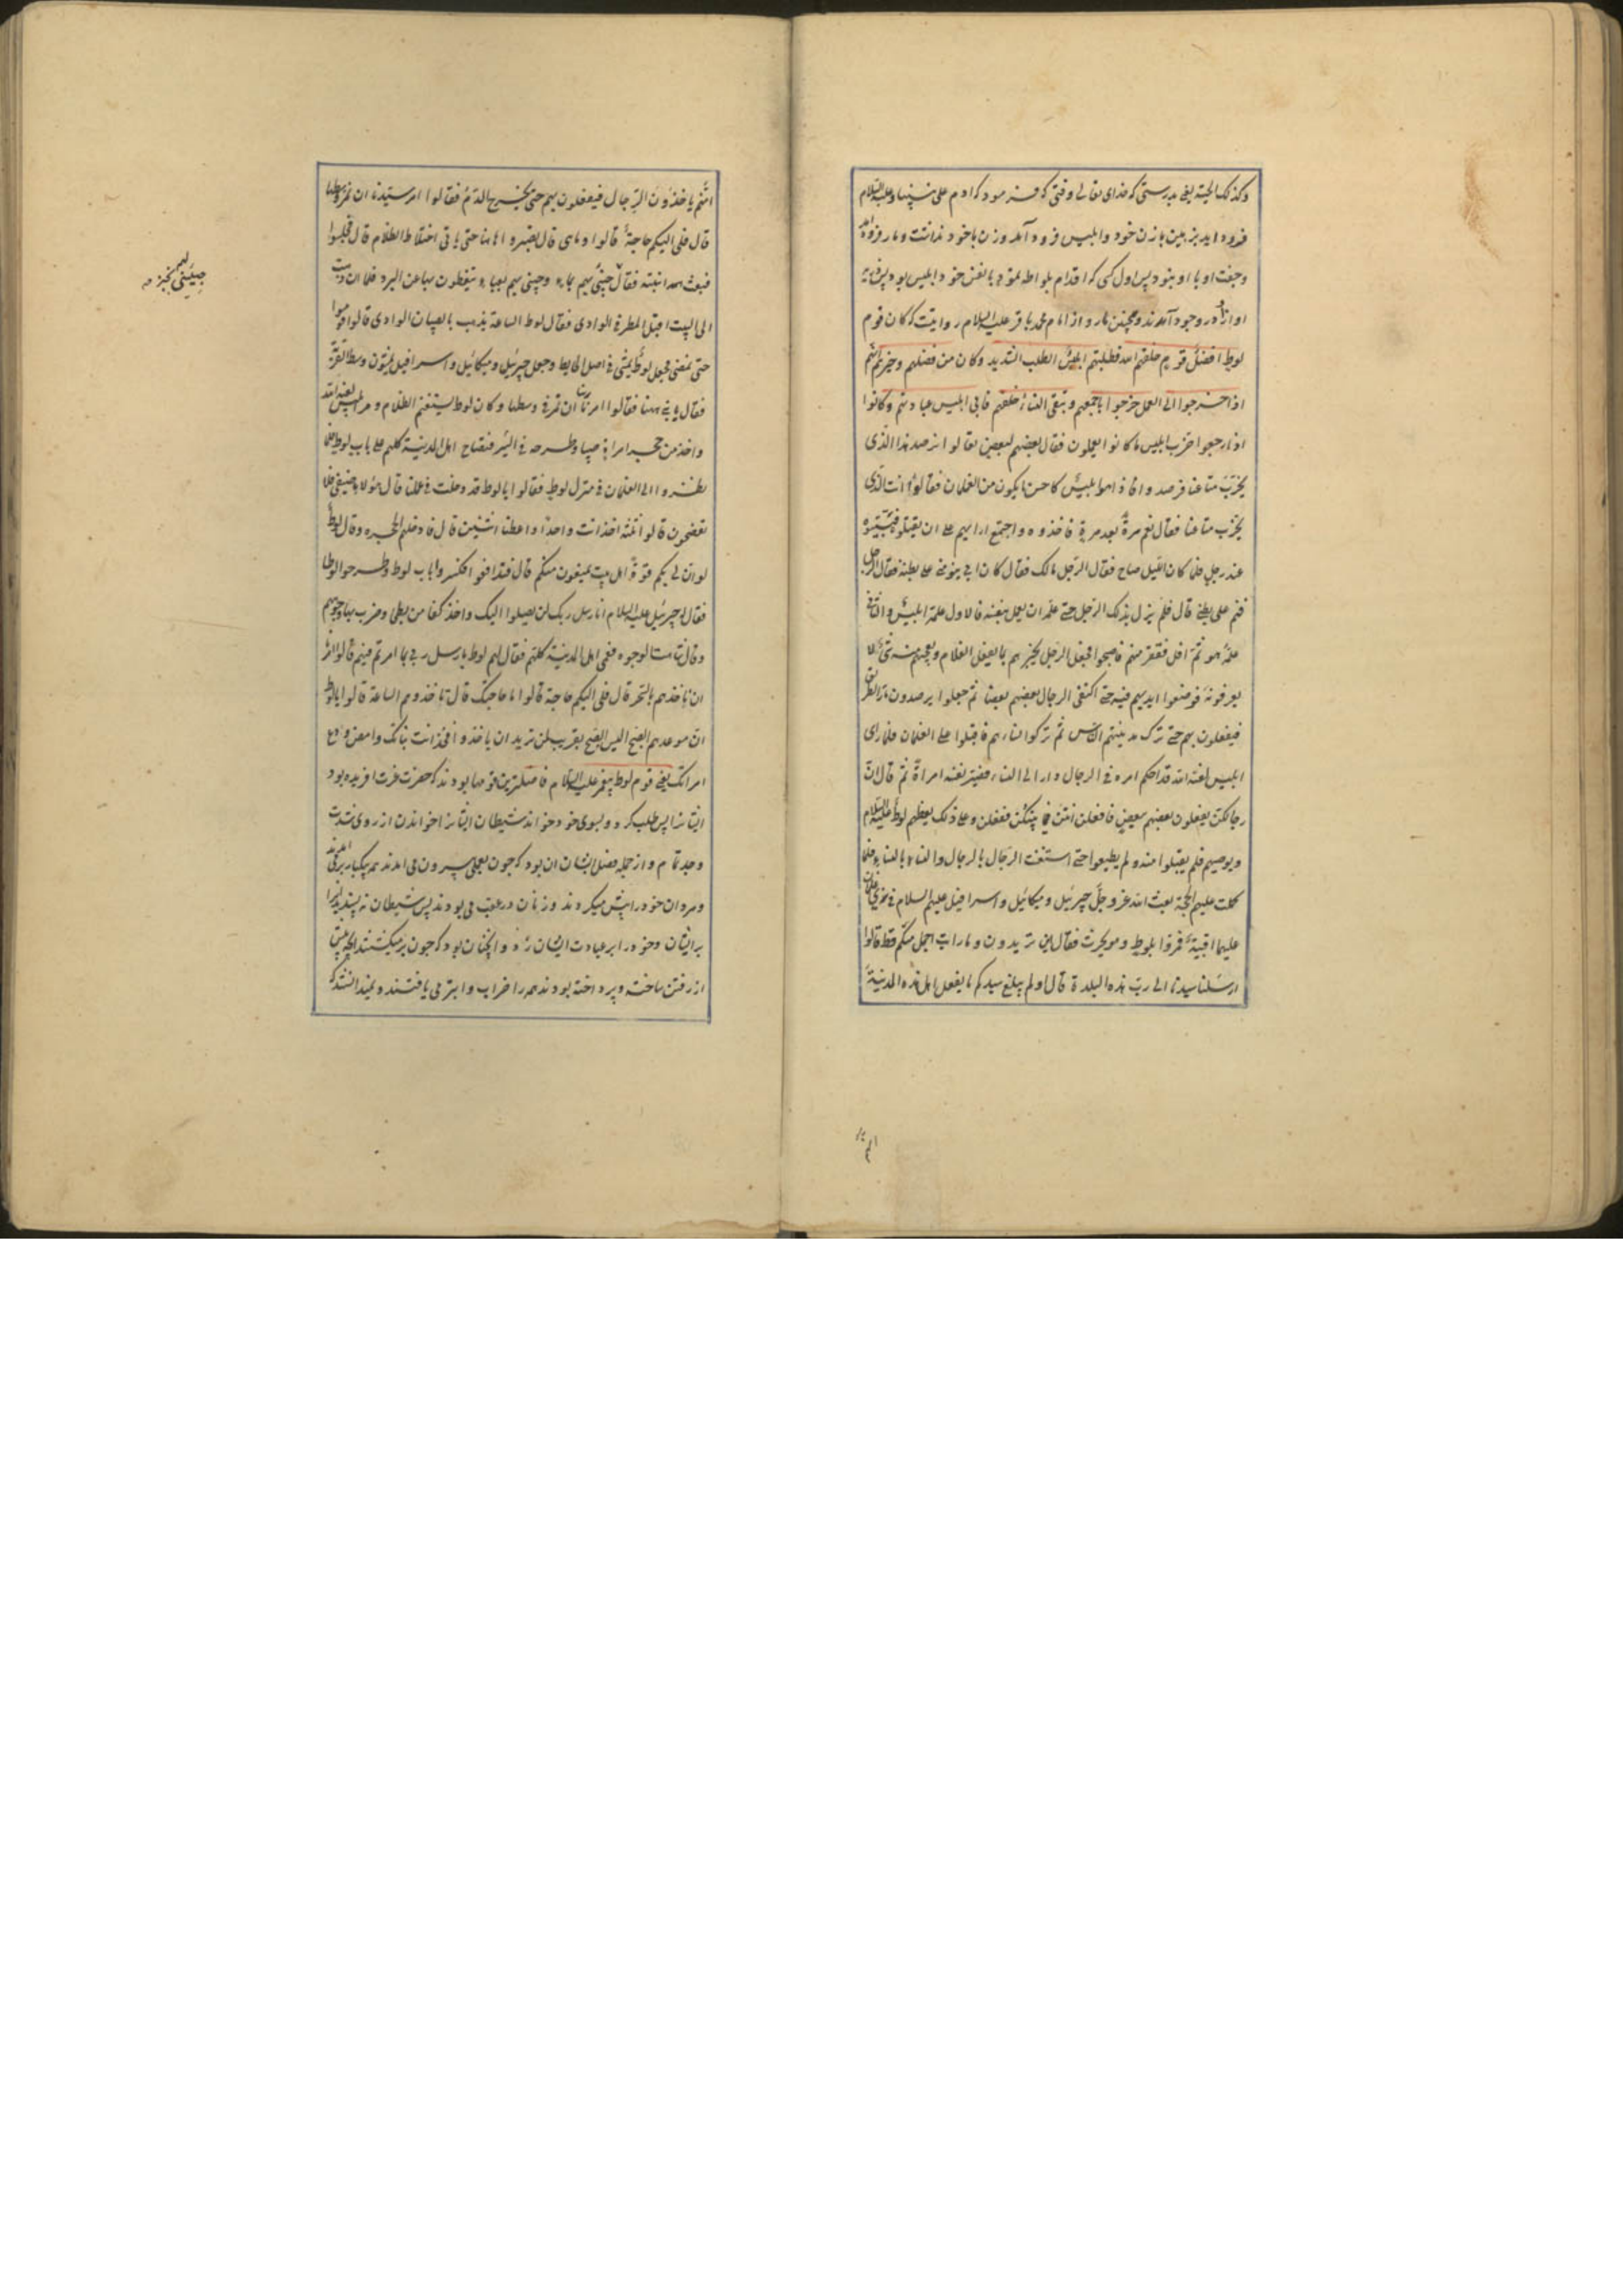 وکذلک الحیّة یعنی بدرستی که خدای تعالی وقتی که فرمود که ادم علی نبینا وعلیه السّلام
فرود اید بزمین با زن خود وابلیس فرود آمد وزن با خود نداشت ومار فرود آمد
وجفت او با او نبود پس اول کسی که اقدام بلواطه نمود با نفس خود ابلیس بود پس ذریّه
او از او در وجود آمدند وهمچنین مار واز امام محمد باقر علیه السلام روایتست که کان قوم
لوط افضل قوم خلقهم الله فطلبهم ابلیس الطلب الشدید وکان من فضلهم وخیرتهم انّهم
اذا خرجوا الی العمل خرجوا باجمعهم وتبقی النساء خلفهم فاتی ابلیس عبادتهم وکانوا
اذا رجعوا خرّب ابلیس ما کانوا یعملون فقال بعضهم لبعض تعالوا نرصد هذا الّذی
یخرّب متاعنا فرصدوه فاذا هو ابلیس کاحسن ما یکون من الغلمان فقالوا انت الّذی
یخرّب متاعنا فقال نعم مرة بعد مرة فاخذوه واجتمع رایهم علی ان یقتلوه فبیّتوه
عند رجل فلما کان اللیل صاح فقال الرّجل مالک فقال کان ابی ینومنی علی بطنه فقال الرجل
فنم علی بطنی قال فلم یزل بذلک الرّجل حتی علّمه ان یعمل بنفسه فالاول علمه ابلیس والثانی
علمه هو ثمّ انسل ففر منهم فاصبحوا فجعل الرّجل یخبرهم بما یفعل الغلام ویعجبهم منه شئ لا
یعرفونه فوضعوا ایدیهم فیه حتی اکتفی الرجال بعضهم ببعض ثمّ جعلوا یرصدون مارّ الطریق
فیفعلون بهم حتی ترک مدینتهم الناس ثمّ ترکوا نساءهم فاقبلوا علی الغلمان فلمّا رای
ابلیس لعنه الله قد احکم امره فی الرجال دار الی النساء فصیّر نفسه امراة ثمّ قال انّ
رجالکنّ یفعلون بعضهم ببعض فافعلن انتنّ فیما بینکنّ ففعلن وعلی ذلک یعظهم لوط علیه السّلام
ویوصیهم فلم یقبلوا منه ولم یطیعوا حتی استغنت الرّجال بالرجال والنساء بالنساء فلما
کملت علیهم الحجّة بعث الله عزوجلّ جبرئیل ومیکائیل واسرافیل علیهم السلام فی زیّ غلمان
علیهم اقبیة فمرّوا بلوط وهو یحرث فقال این تریدون وما رایت اجمل منکم قطّ قالوا
ارسلنا سیدنا الی ربّ هذه البلدة قال اولم یبلغ سیدکم ما یفعل اهل هذه المدینة
انّهم یاخذون الرّجال فیفعلون بهم حتی یخرج الدّم فقالوا امر سیّدنا ان نمرّ وسطها
قال فلی الیکم حاجة قالوا وماهی قال تصبروا هاهنا حتی یاتی اختلاط الظلام قال فجلسوا
فبعث ابنته فقال جیئی لهم بماء وجیئی لهم بعباء یتغطون بها من البرد فلما ان ذهبت
الی البیت اقبل المطر فی الوادی فقال لوط الساعة یذهب بالصبیان الوادی قالوا قوموا
حتی نمضی فجعل لوط یمشی فی اصل الحایط وجعل جبرئیل ومیکائیل واسرافیل یمشون وسط الطریق
فقال یا بنی هاهنا فقالوا امرنا ان نمرّ فی وسطها وکان لوط یستغنم الظلام ومرّ ابلیس لعنه الله
واخذ من حجر امراة صبیا وطرحه فی البئر فتصایح اهل المدینة کلهم علی باب لوط فلما
نظروا الی الغلمان فی منزل لوط فقالوا یا لوط قد دخلت فی عملنا قال هؤلاء ضیفی فلا
تفضحون قالوا ثلثة اخذ انت واحدا واعطنا اثنین قال فادخلهم الحجرة وقال لوط
لو انّ لی بکم قوّة او اهل بیت یمنعون منکم قال فتدافعوا وکسروا باب لوط وطرحوا لوطا
فقال جبرئیل علیه السلام انا رسل ربک لن یصلوا الیک واخذ کفا من بطحا وضرب بها وجوههم
وقال شاهت الوجوه فعمی اهل المدینة کلهم فقال لهم لوط یا رسل ربی بما امرتم فیهم قالوا امرنا
ان ناخذهم بالسّحر قال فلی الیکم حاجة قالوا ما حاجتک قال تاخذوهم الساعة قالوا یا لوط
انّ موعدهم الصبح الیس الصبح بقریب لمن یرید ان یاخذ فخذ انت بناتک وامض ودع
امراتک یعنی قوم لوط پیغمبر علیه السّلام فاضلترین قومها بودند که حضرت عزت افریده بود
ایشانرا پس طلب کرد وبسوی خود خواند شیطان ایشانرا خواندن از روی شدت
وجد تمام واز جمله فضل ایشان ان بود که چون بعملی بیرون می امدند همه یکبار بیرون می امدند
ومردان خود را پیش میکردند وزنان در عقب می بودند پس شیطان نه پسندید این را
بر ایشان وخود را بر عبادت ایشان زد وانچنان بود که چون بر میگشتند انچه پیش
از رفتن ساخته وپرداخته بودند همه را خراب وابتر می یافتند ونمیدانستند که
جیئنی لهم بخبز
انهم